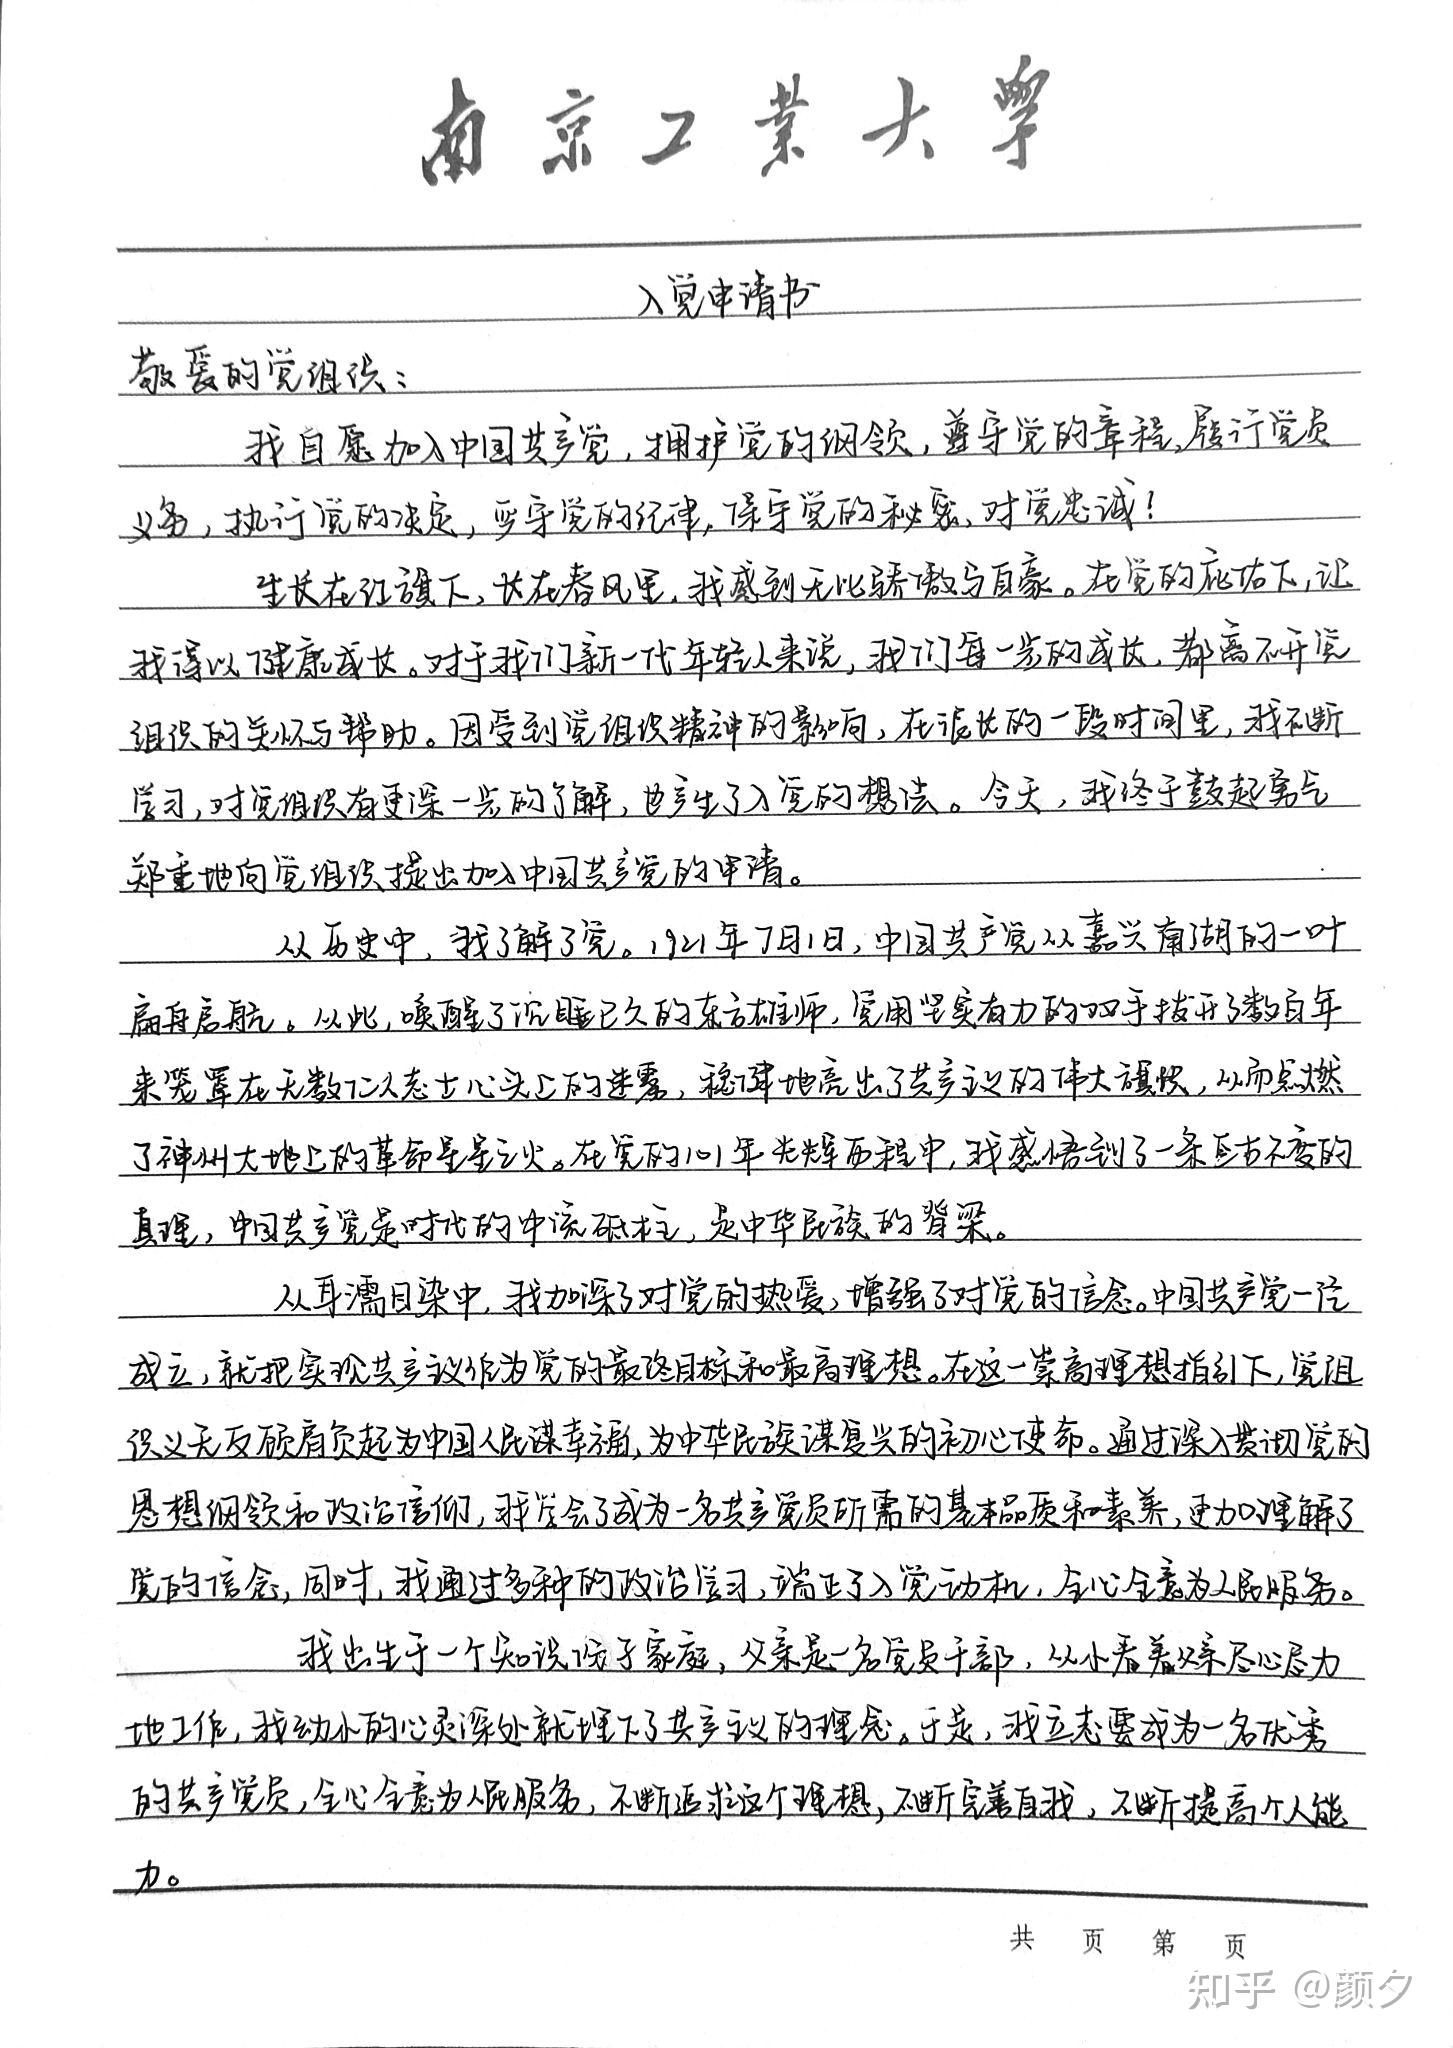 南京工业大学
入党申请书
敬爱的党组织：
我自愿加入中国共产党，拥护党的纲领，遵守党的章程，履行党员
义务，执行党的决定，严守党的纪律，保守党的秘密，对党忠诚！
生长在红旗下，长在春风里，我感到无比骄傲与自豪。在党的庇佑下，让
我得以健康成长。对于我们新一代年轻人来说，我们每一步的成长，都离不开党
组织的关怀与帮助。因受到党组织精神的影响，在很长的一段时间里，我不断
学习，对党组织有更深一步的了解，也产生了入党的想法。今天，我终于鼓起勇气
郑重地向党组织提出加入中国共产党的申请。
从历史中，我了解了党。1921年7月1日，中国共产党从嘉兴南湖的一叶
扁舟启航。从此，唤醒了沉睡已久的东方雄师，党用坚实有力的双手拔开了数百年
来笼罩在无数仁人志士心头上的迷雾，稳健地亮出了共产主义的伟大旗帜，从而点燃
了神州大地上的革命星星之火。在党的101年光辉历程中，我感悟到了一条亘古不变的
真理，中国共产党是时代的中流砥柱，是中华民族的脊梁。
从耳濡目染中，我加深了对党的热爱，增强了对党的信念。中国共产党一经
成立，就把实现共产主义作为党的最终目标和最高理想。在这一崇高理想指引下，党组
织义无反顾肩负起为中国人民谋幸福，为中华民族谋复兴的初心使命。通过深入贯彻党的
思想纲领和政治信仰，我学会了成为一名共产党员所需的基本品质和素养，更加理解了
党的信念，同时，我通过多种的政治学习，端正了入党动机，全心全意为人民服务。
我出生于一个知识份子家庭，父亲是一名党员干部，从小看着父亲尽心尽力
地工作，我幼小的心灵深处就埋下了共产主义的理念。于是，我立志要成为一名优秀
的共产党员，全心全意为人民服务，不断追求这个理想，不断完善自我，不断提高个人能
力。
共 页 第 页
知乎 @颜夕